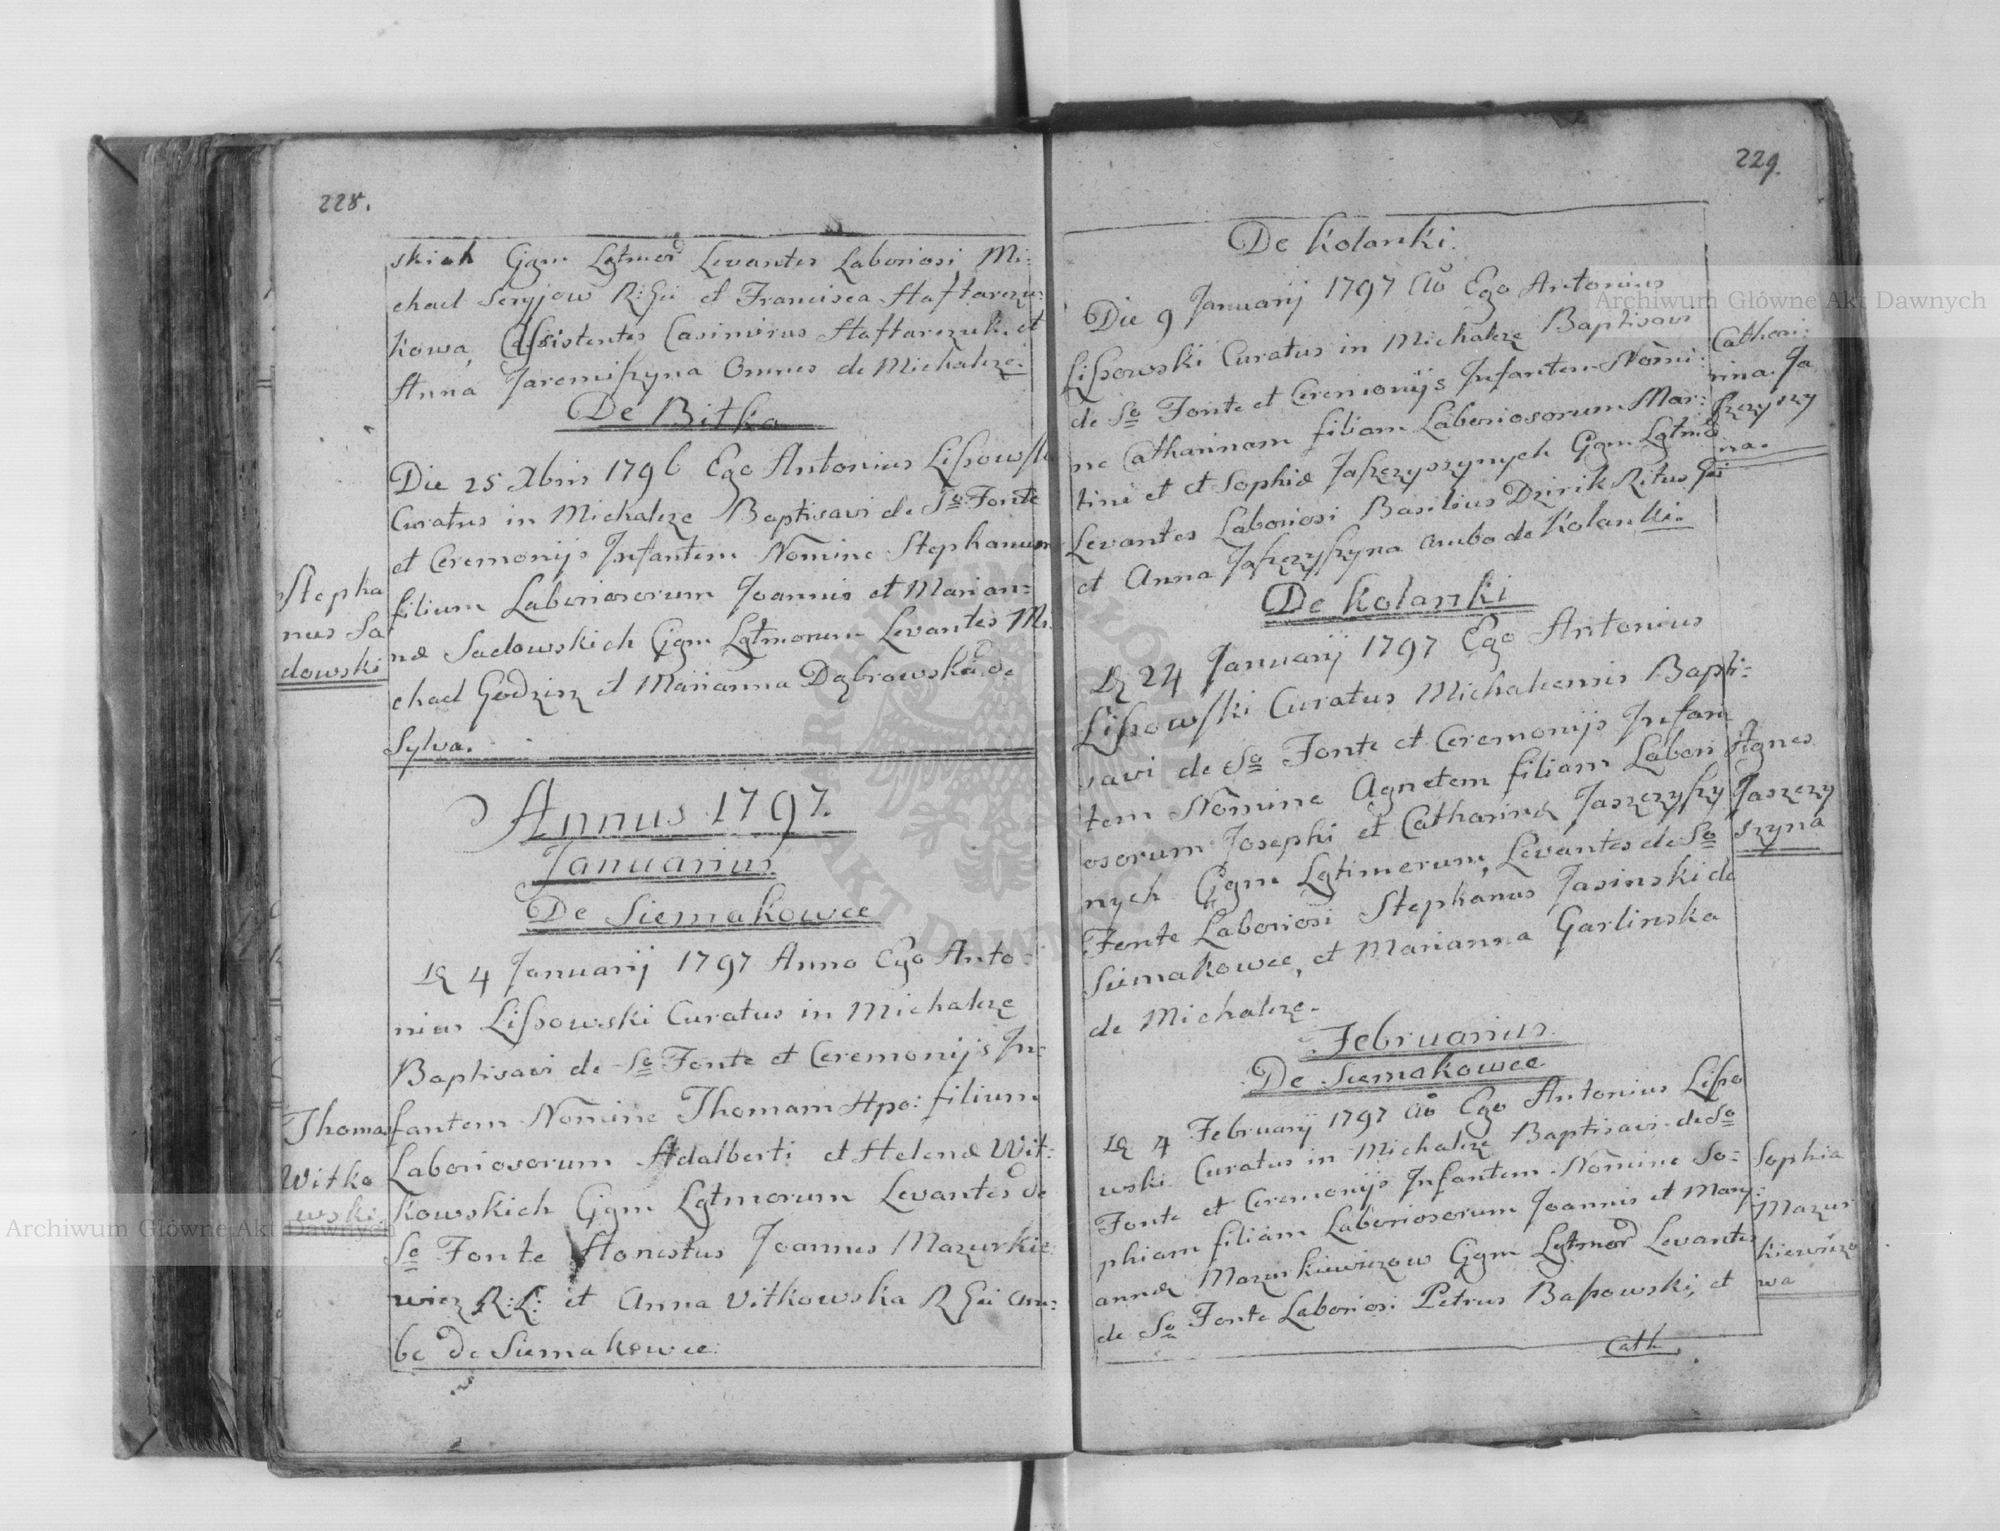 228.
skich Ggm Lgtmor̃ Levantes Laboriosi Mi:
chael Seryjow R: Gći et Francisca Haftarczu:
kowa, Assistentes Casimirus Haftarczuk. et
Anna Jaremiszyna Omnes de Michalcze.
De Bitka
Die 25 Xbris 1796 Ego Antonius Lissowski
Curatus in Michalcze Baptisavi de So: Fonte
et Ceremonijs Infantem Nomine Stephanum
filium Laboriosorum Joannis et Marian:
næ Sadowskich Ggm Lgtmorum Levantes Mi:
chael Godzisz et Marianna Dąbrowska de
Sylva.
Stepha
nus Sa
dowski
Annus 1797.
Januarius
De Siemakowce
D 4 Januarij 1797 Anno Ego Anto:
nius Lissowski Curatus in Michalcze
Baptisavi de So Fonte et Ceremonijs In:
fantem Nõmine Thomam Apo: filium
Laboriosorum Adalberti et Helenæ Wit:
kowskich Ggm Lgtmorum Levantes de
So Fonte Honestus Joannes Mazurkie:
wicz R: L: et Anna Vitkowska R Gći Am:
bo de Siemakowce.
Thomas
Witko
wski.
229.
De Kolanki.
Die 9 Januarij 1797 Aõ Ego Antonius
Lissowski Curatus in Michalcze Baptisavi
de So Fonte et Ceremonijs Infantem Nõmi:
ne Catharinam filiam Laboriosorum Mar:
tini et et Sophiæ Jaszczyszynych Ggm Lgtmõ
Levantes Laboriosi Basilius Dzirik Ritus Gći
et Anna Jaszczyszyna ambo de Kolanki.
Cathari:
rina Ja
szczyszy
na.
De Kolanki
D 24 Januarij 1797 Ego Antonius
Lissowski Curatus Michalcensis Bapti:
savi de So Fonte et Ceremonijs Infan
tem Nõmine Agnetem filiam Labori
osorum Josephi et Catharinæ Jaszczyszy
nych Ggm Lgtimorum, Levantes de So
Fonte Laboriosi Stephanus Jasinski de
Siemakowce, et Marianna Garlinska
de Michalcze.
Agnes
Jaszczy
szyna
Februarius
De Siemakowce
D 4 Februarij 1797 Aõ Ego Antonius Lisso
wski Curatus in Michalcze Baptisavi de So
Fonte et Ceremonijs Infantem Nõmine So:
phiam filiam Laboriosorum Joannis et Mary:
annæ Mazurkiewiczow Ggm Lgtmor̃ Levantes
de So Fonte Laboriosi Petrus Bassowski, et
Cath
Sophia
Mazur
kiewiczo
wa
Archiwum Główne Akt Dawnych
Archiwum Główne Akt Dawnych
ARCHIWUM GŁÓWNE AKT DAWNYCH